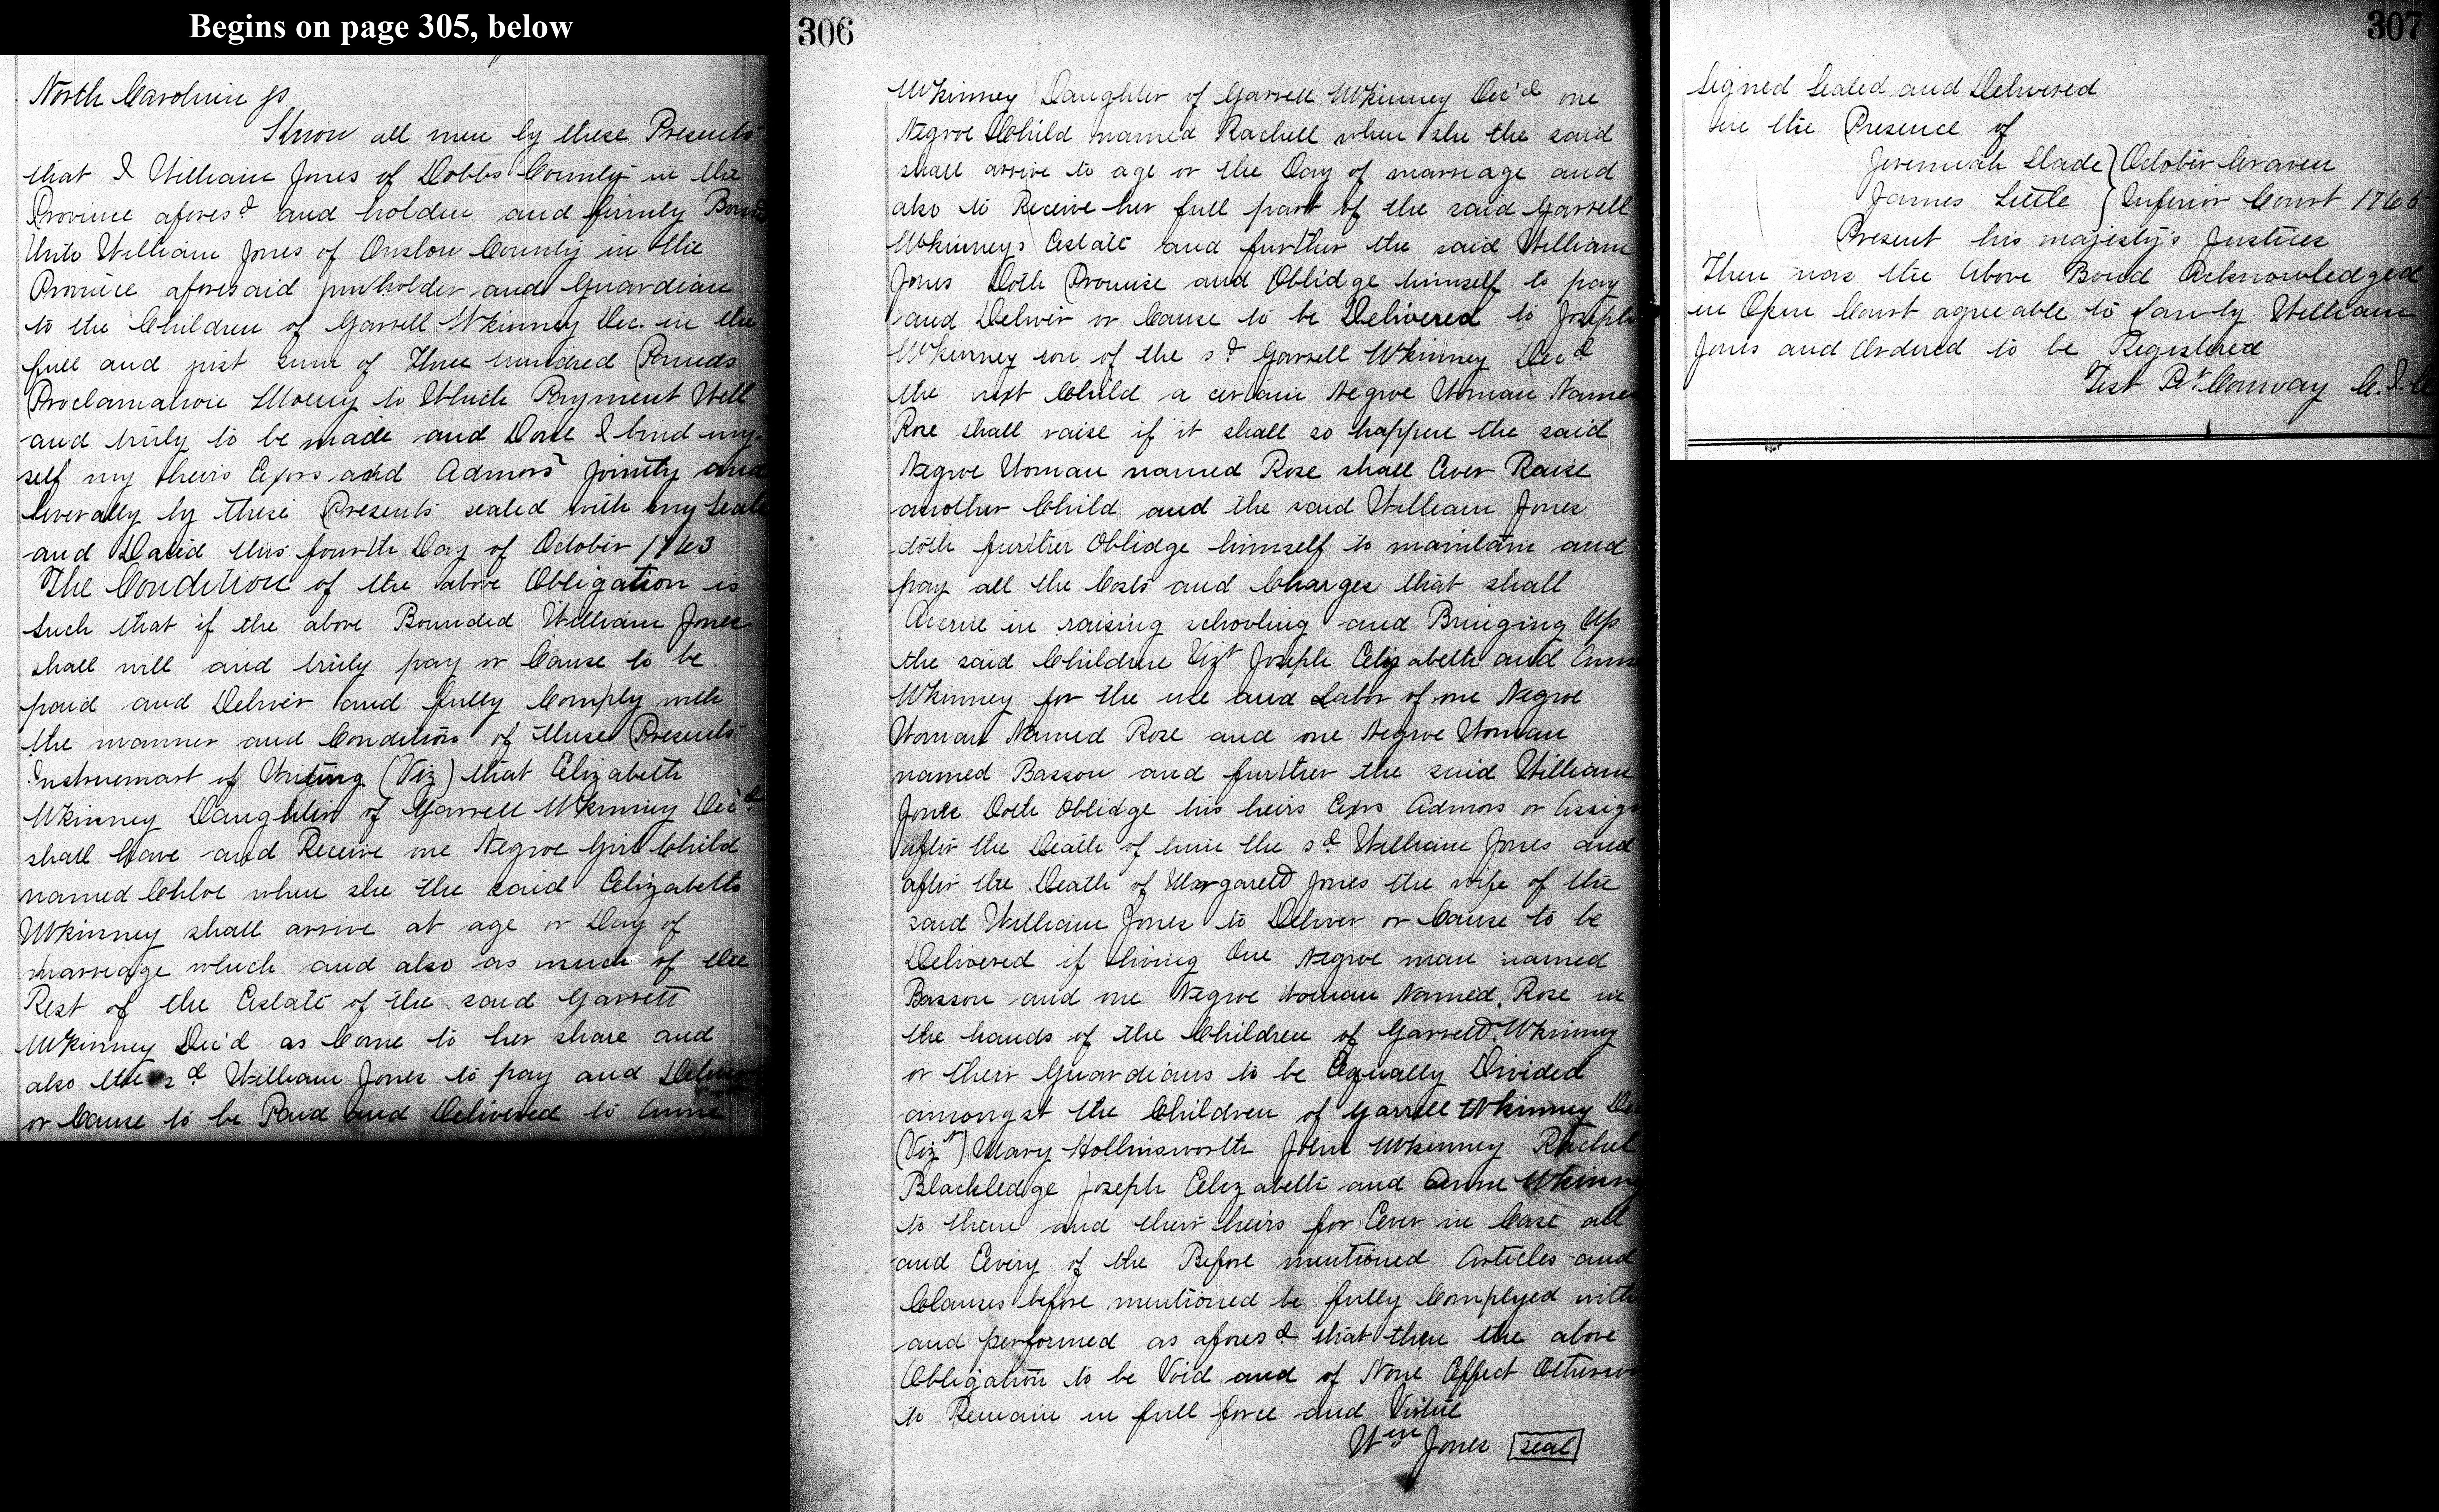 Begins on page 305, below
North Carolina ss
Know all men by these Presents
that I William Jones of Dobbs County in the
Province afores.d and holden and firmly Bound
Unto William Jones of Onslow County in the
Province aforesaid and Guardian
to the Children of Garrell McKinney Dec. in the
full and just sum of Three hundred Pounds
Proclamation Money to Which Payment Well
and truly to be made and Done I bind my-
self my heirs Exors and Admors Jointly and
severally by these Presents sealed with my Seale
and Dated this fourth Day of October 1763
The Condition of the above Obligation is
such that if the above Bounded William Jones
shall will and truly pay or Cause to be
paid and Deliver and fully Comply with
the manner and Condition of these Presents
Instruemant of Writing (Viz) that Elizabeth
McKinney Daughter of Garrell McKinney Dec'd
shall have and Receive one Negroe Girl Child
named Chloe when she the said Elizabeth
McKinney shall arrive at age or Day of
marriage which and also as much of the
Rest of the Estate of the said Garrett
McKinney Dec'd as Come to her share and
also the s.d William Jones to pay and Deliver
or Cause to be Paid and Delivered to Anne
306
McKinney Daughter of Garrell McKinney Dec'd one
Negroe Child named Rachell when she the said
shall arrive to age or the Day of marriage and
also to Receive her full part of the said Garrell
McKinneys Estate and further the said William
Jones Doth Promise and Oblidge himself to pay
and Deliver or Cause to be Delivered to Joseph
McKinney son of the s.d Garrell McKinney Dec.d
the next Child a certain Negroe Woman Named
Rose shall raise if it shall so happen the said
Negroe Woman named Rose shall Ever Raise
another Child and the said William Jones
doth further Oblidge himself to maintain and
pay all the Costs and Charges that shall
Accrue in raising schooling and Bringing Up
the said Children Vizt Joseph Elizabeth and Anne
McKinney for the use and Labor of one Negroe
Woman Named Rose and one Negroe Woman
named Basson and further the said William
Jones Doth Oblidge his heirs Exrs Admors or Assigns
after the Death of him the s.d William Jones and
after the Death of Margarett Jones the wife of the
said William Jones to Deliver or Cause to be
Delivered if living One Negroe man named
Basson and one Negroe Woman Named Rose in
the hands of the Children of Garrett McKinney
or their Guardians to be Equally Divided
amongst the Children of Garrell McKinney Dec
(Vizt) Mary Hollinsworth John McKinney Rachel
Blackledge Joseph Elizabeth and Anne McKinney
to them and their heirs for Ever in Case all
and Every of the Before mentioned Articles and
Clauses before mentioned be fully Complyed with
and performed as afores.d that then the above
Obligation to be Void and of None Effect Otherwise
to Remain in full force and Virtue
Wm Jones seal
307
Signed Sealed and Delivered
in the Presence of
Jeremiah Slade } October Craven
James Little } Inferior Court 1765
Present his majesty's Justices
Then was the above Bond Acknowledged
in Open Court agreeable to Law by William
Jones and Ordered to be Registered
Test Pr Conway C.I.C